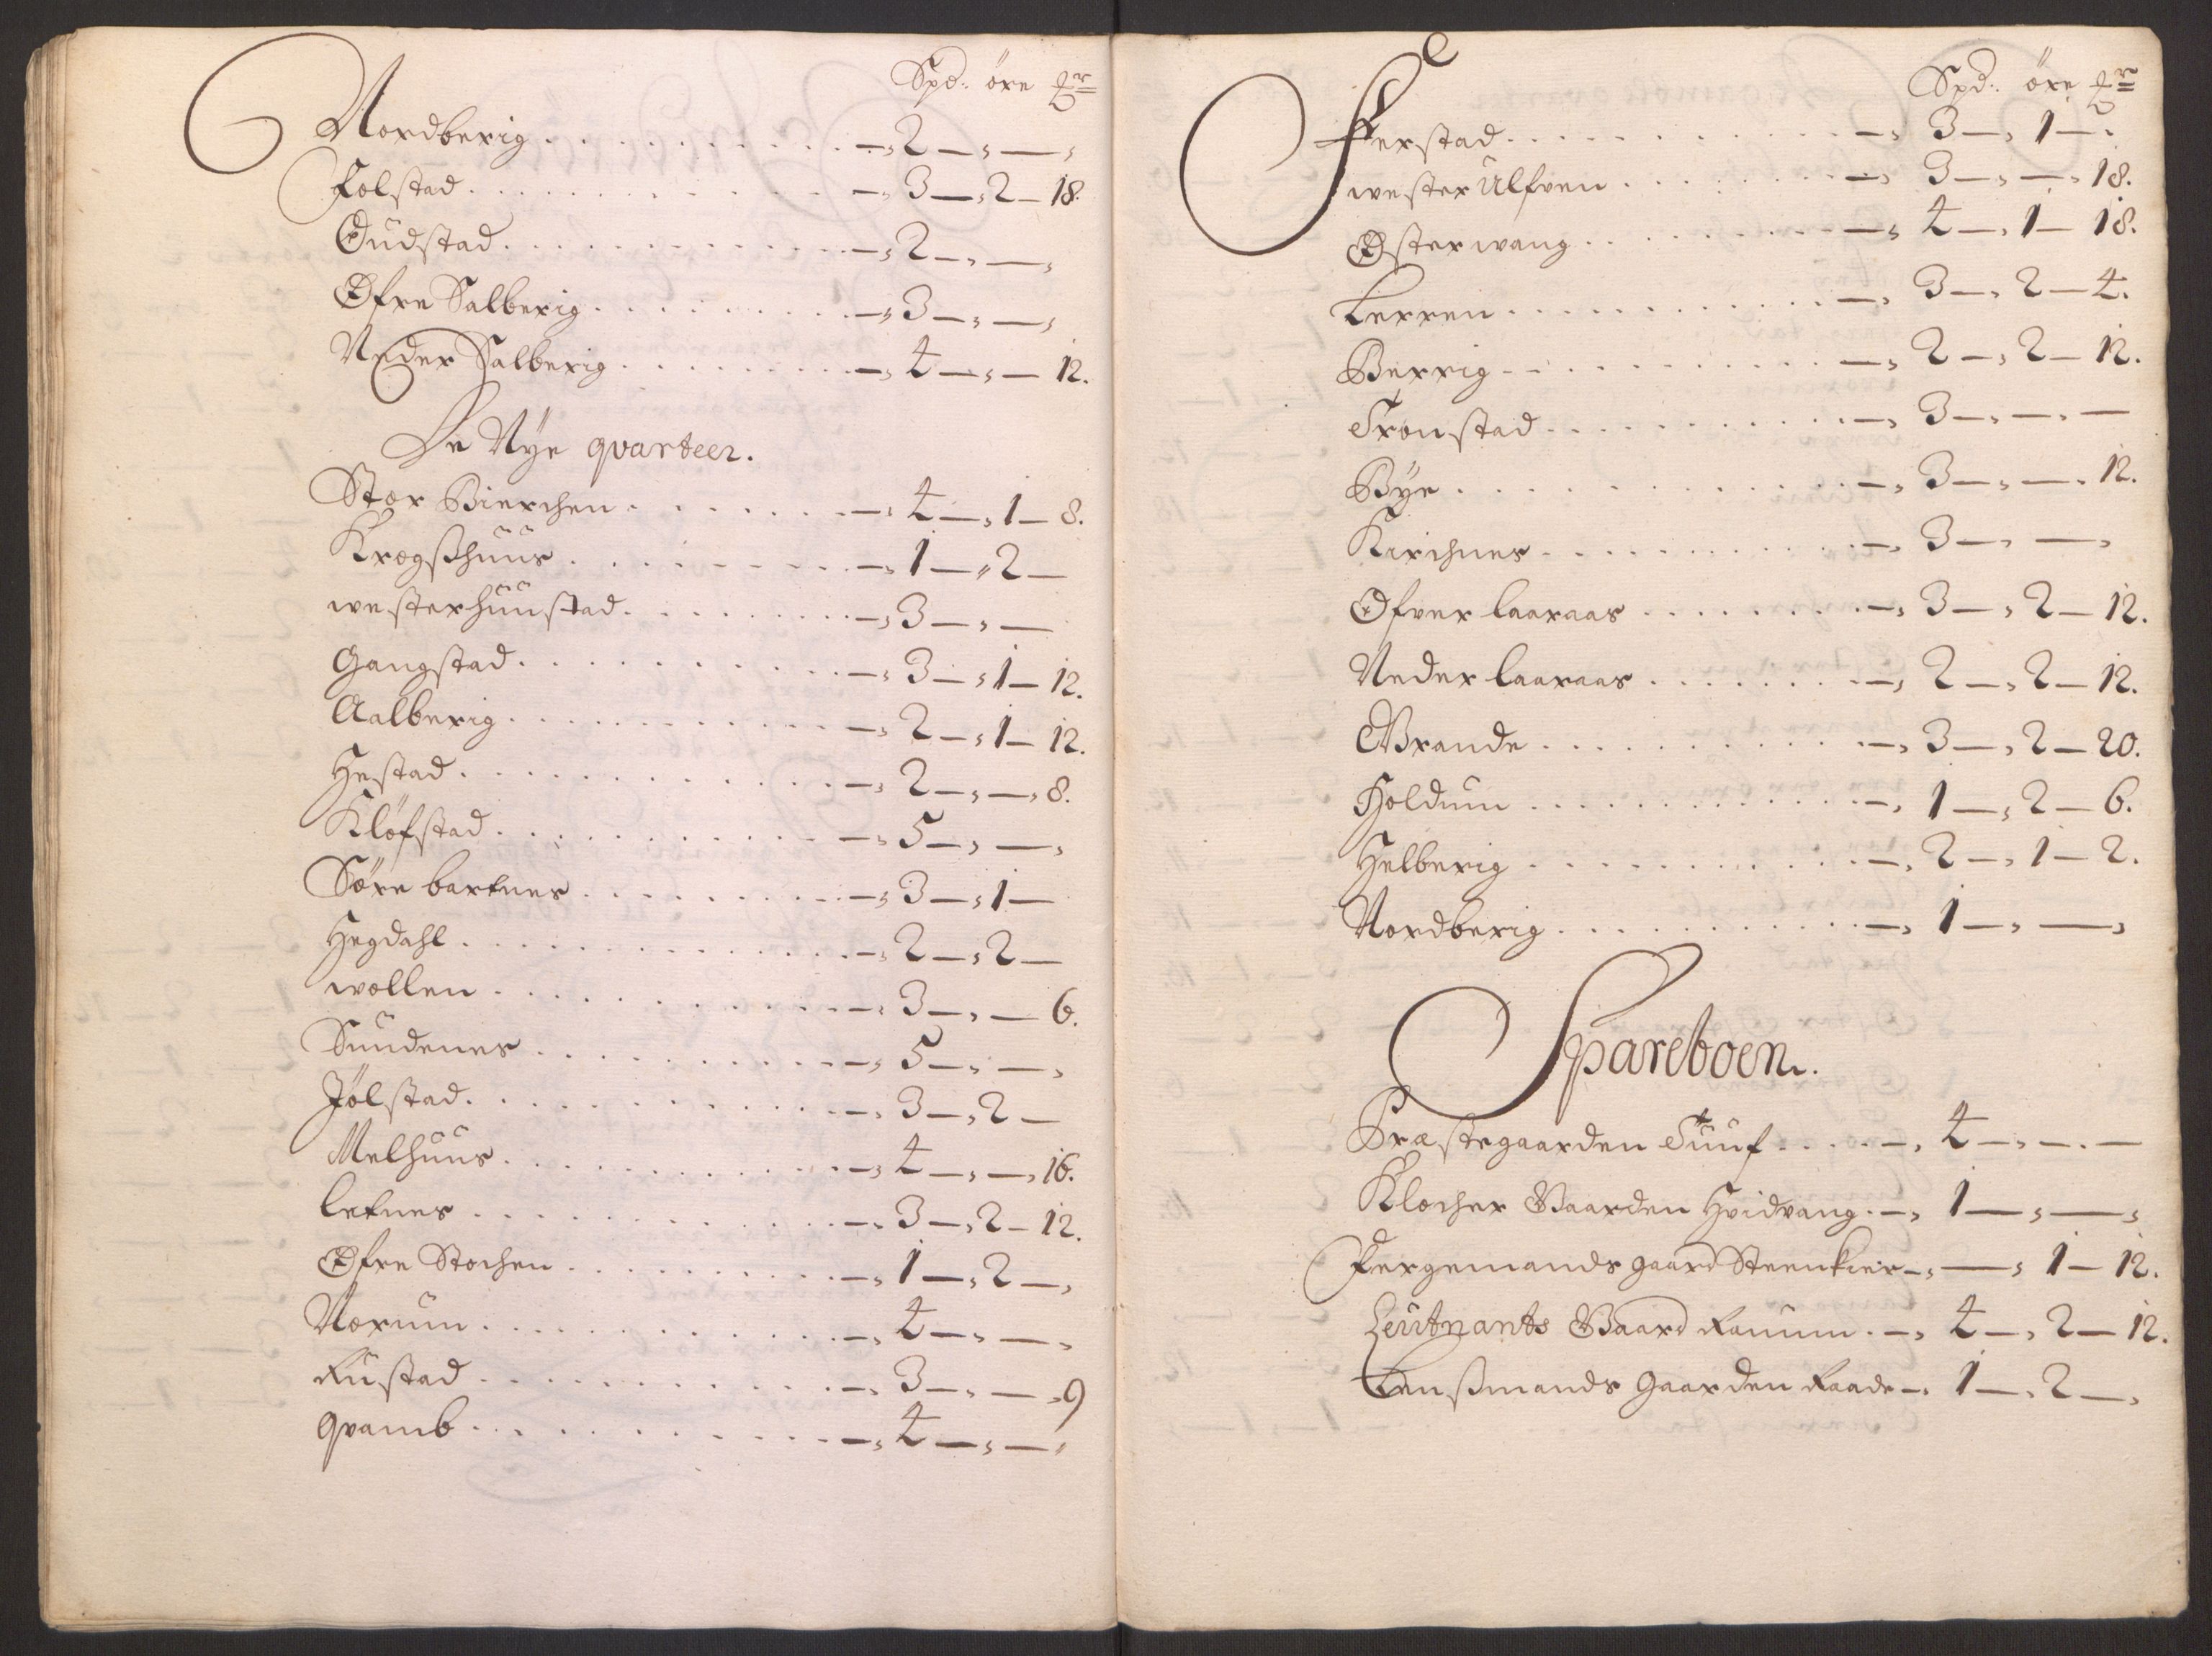 Spd: öre
Nordberig . . . 2 — , — ,
Folstad . . . 3 — , 2 — 18.
Gudstad . . . 2 — , — ,
Øfre Salberig . . . 3 — , — ,
Neder Salberig . . . 4 — , — 12.
De Nye qvarteer.
Stor Bierchen . . . 4 — , 1 — 8.
Krogsshuus . . . 1 — , 2 —
westerhuustad . . . 3 — , —
Gangstad . . . 3 — , 1 — 12.
Aalberig . . . 2 — , 1 — 12.
Hestad . . . 2 — , — , 8.
Kløfstad . . . 5 — , — ,
Søre bartnes . . . 3 — , 1 —
Hegdahl . . . 2 — , 2 —
wollen . . . 3 — , — 6.
Sundenes . . . 5 — , — ,
Jølstad . . . 3 — , 2 —
Melhuus . . . 4 — , — , 16.
letnes . . . 3 — , 2 — 12.
Øfre Stochen . . . 1 — , 2 — ,
Norum . . . 4 — , — ,
Rustad . . . 3 — , — , 9
qvamb . . . 4 — , — ,
Spd: öre
Ferstad . . . 3 — , 1 — .
wester Ulfven . . . 3 — , — , 18.
Østerwang . . . 4 — , 1 — 18.
Lerren . . . 3 — , 2 — 4.
Berrig . . . 2 — , 2 — 12.
Tronstad . . . 3 — , — , —
Bÿe . . . 3 — , — . 12.
Kirchnes . . . 3 — , — ,
Øfver laaraas . . . 3 — , 2 — 12.
Neder laaraas . . . 2 — , 2 — 12.
Grande . . . 3 — , 2 — 20.
Holdum . . . 1 — , 2 — 6.
Helberig . . . 2 — , 1 — 2.
Nordberig . . . 1 — , — ,
Spareboen.
Præstegaarden Tuuf . . . 4 — , — . —
Klocher Gaarden Hvidvang . — , 1 — , — ,
Fergemands gaard Steenkier — , — , 1 — 12.
Leutnants Gaard Rauum . — , 4 — , 2 — 12.
Lenssmands Gaarden Raade — , 1 — , 2 — ,